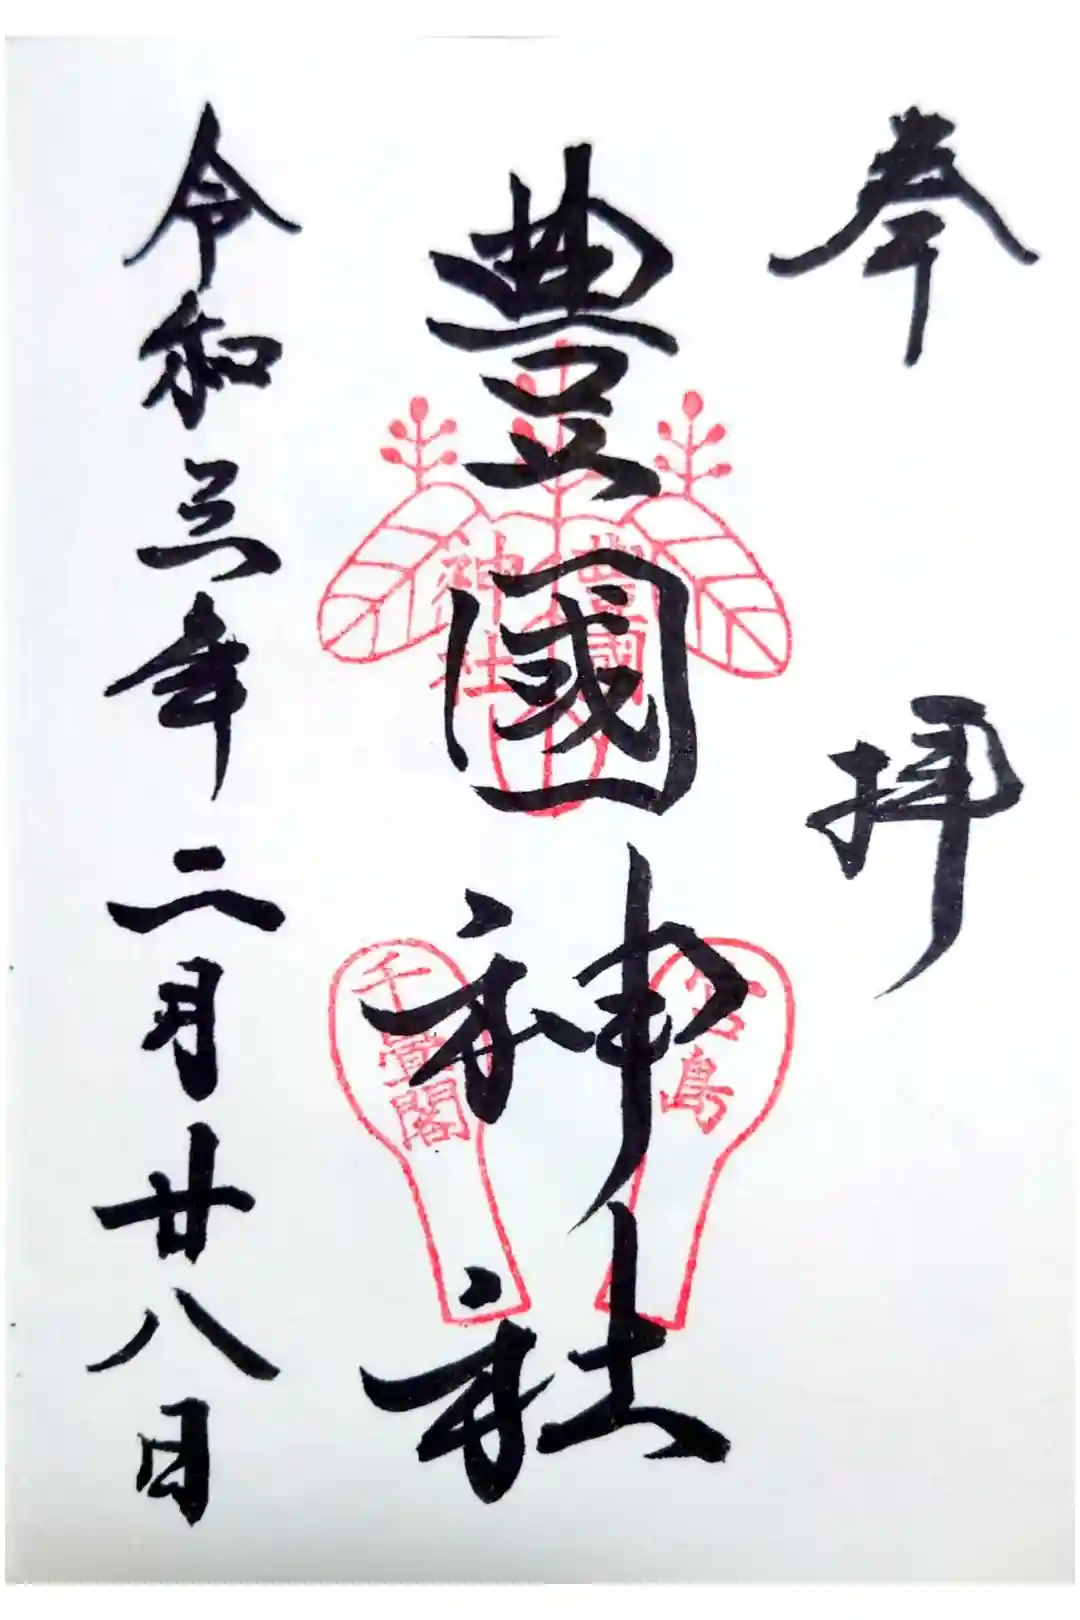 奉拝
豊國神社
豊國
神社
宮島
千畳閣
令和三年二月廿八日